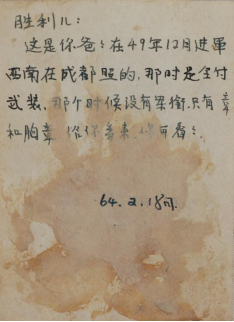 胜利儿:
这是你爸々在49年12月进军
西南在成都照的,那时是全付
武装,那个时候没有军衔,只有
和胸章,你看々.
64.2.18日.